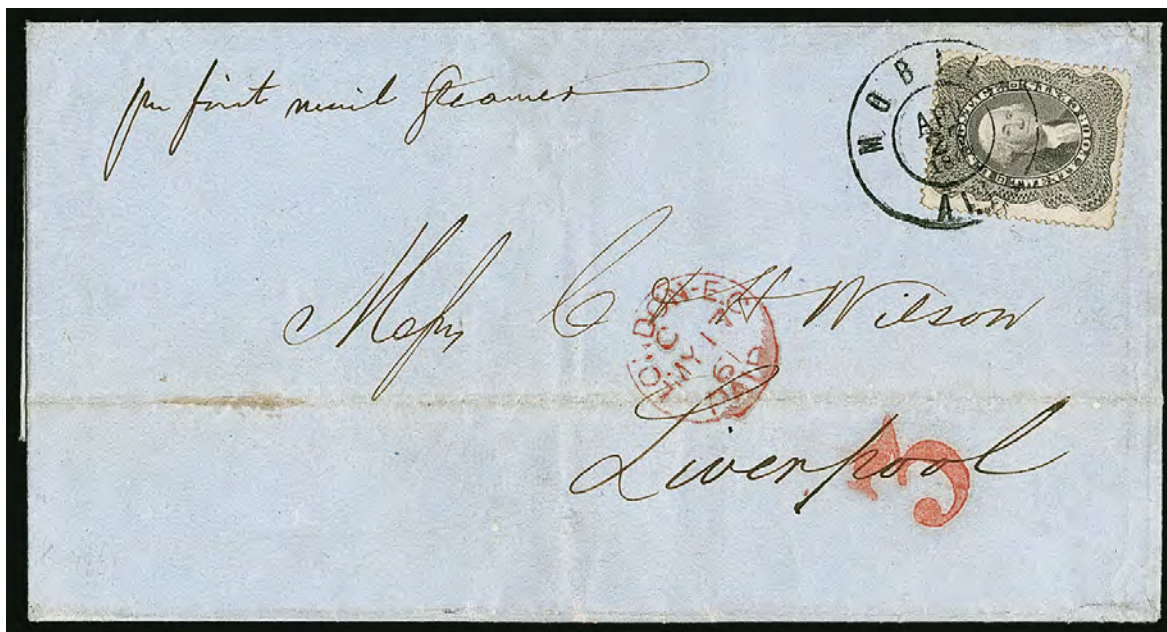 per first mail Steamer
MOBIL
AL
U.S. POSTAGE
Messrs C & H Wilson
LONDON-E.C
C
MY 17
61
PAID
Liverpool
5